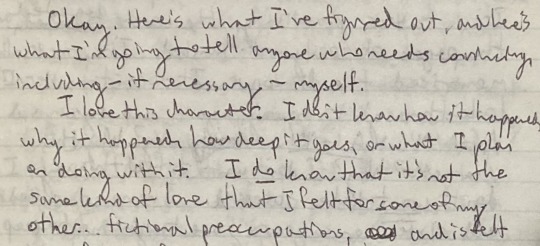 Okay. Here's what I've figured out, and here's
what I'm going to tell anyone who needs convincing,
including - if necessary - myself.
I love this character. I don't know how it happened,
why it happened, how deep it goes, or what I plan
on doing with it. I do know that it's not the
same kind of love that I felt for some of my
other... fictional preoccupations, and is felt